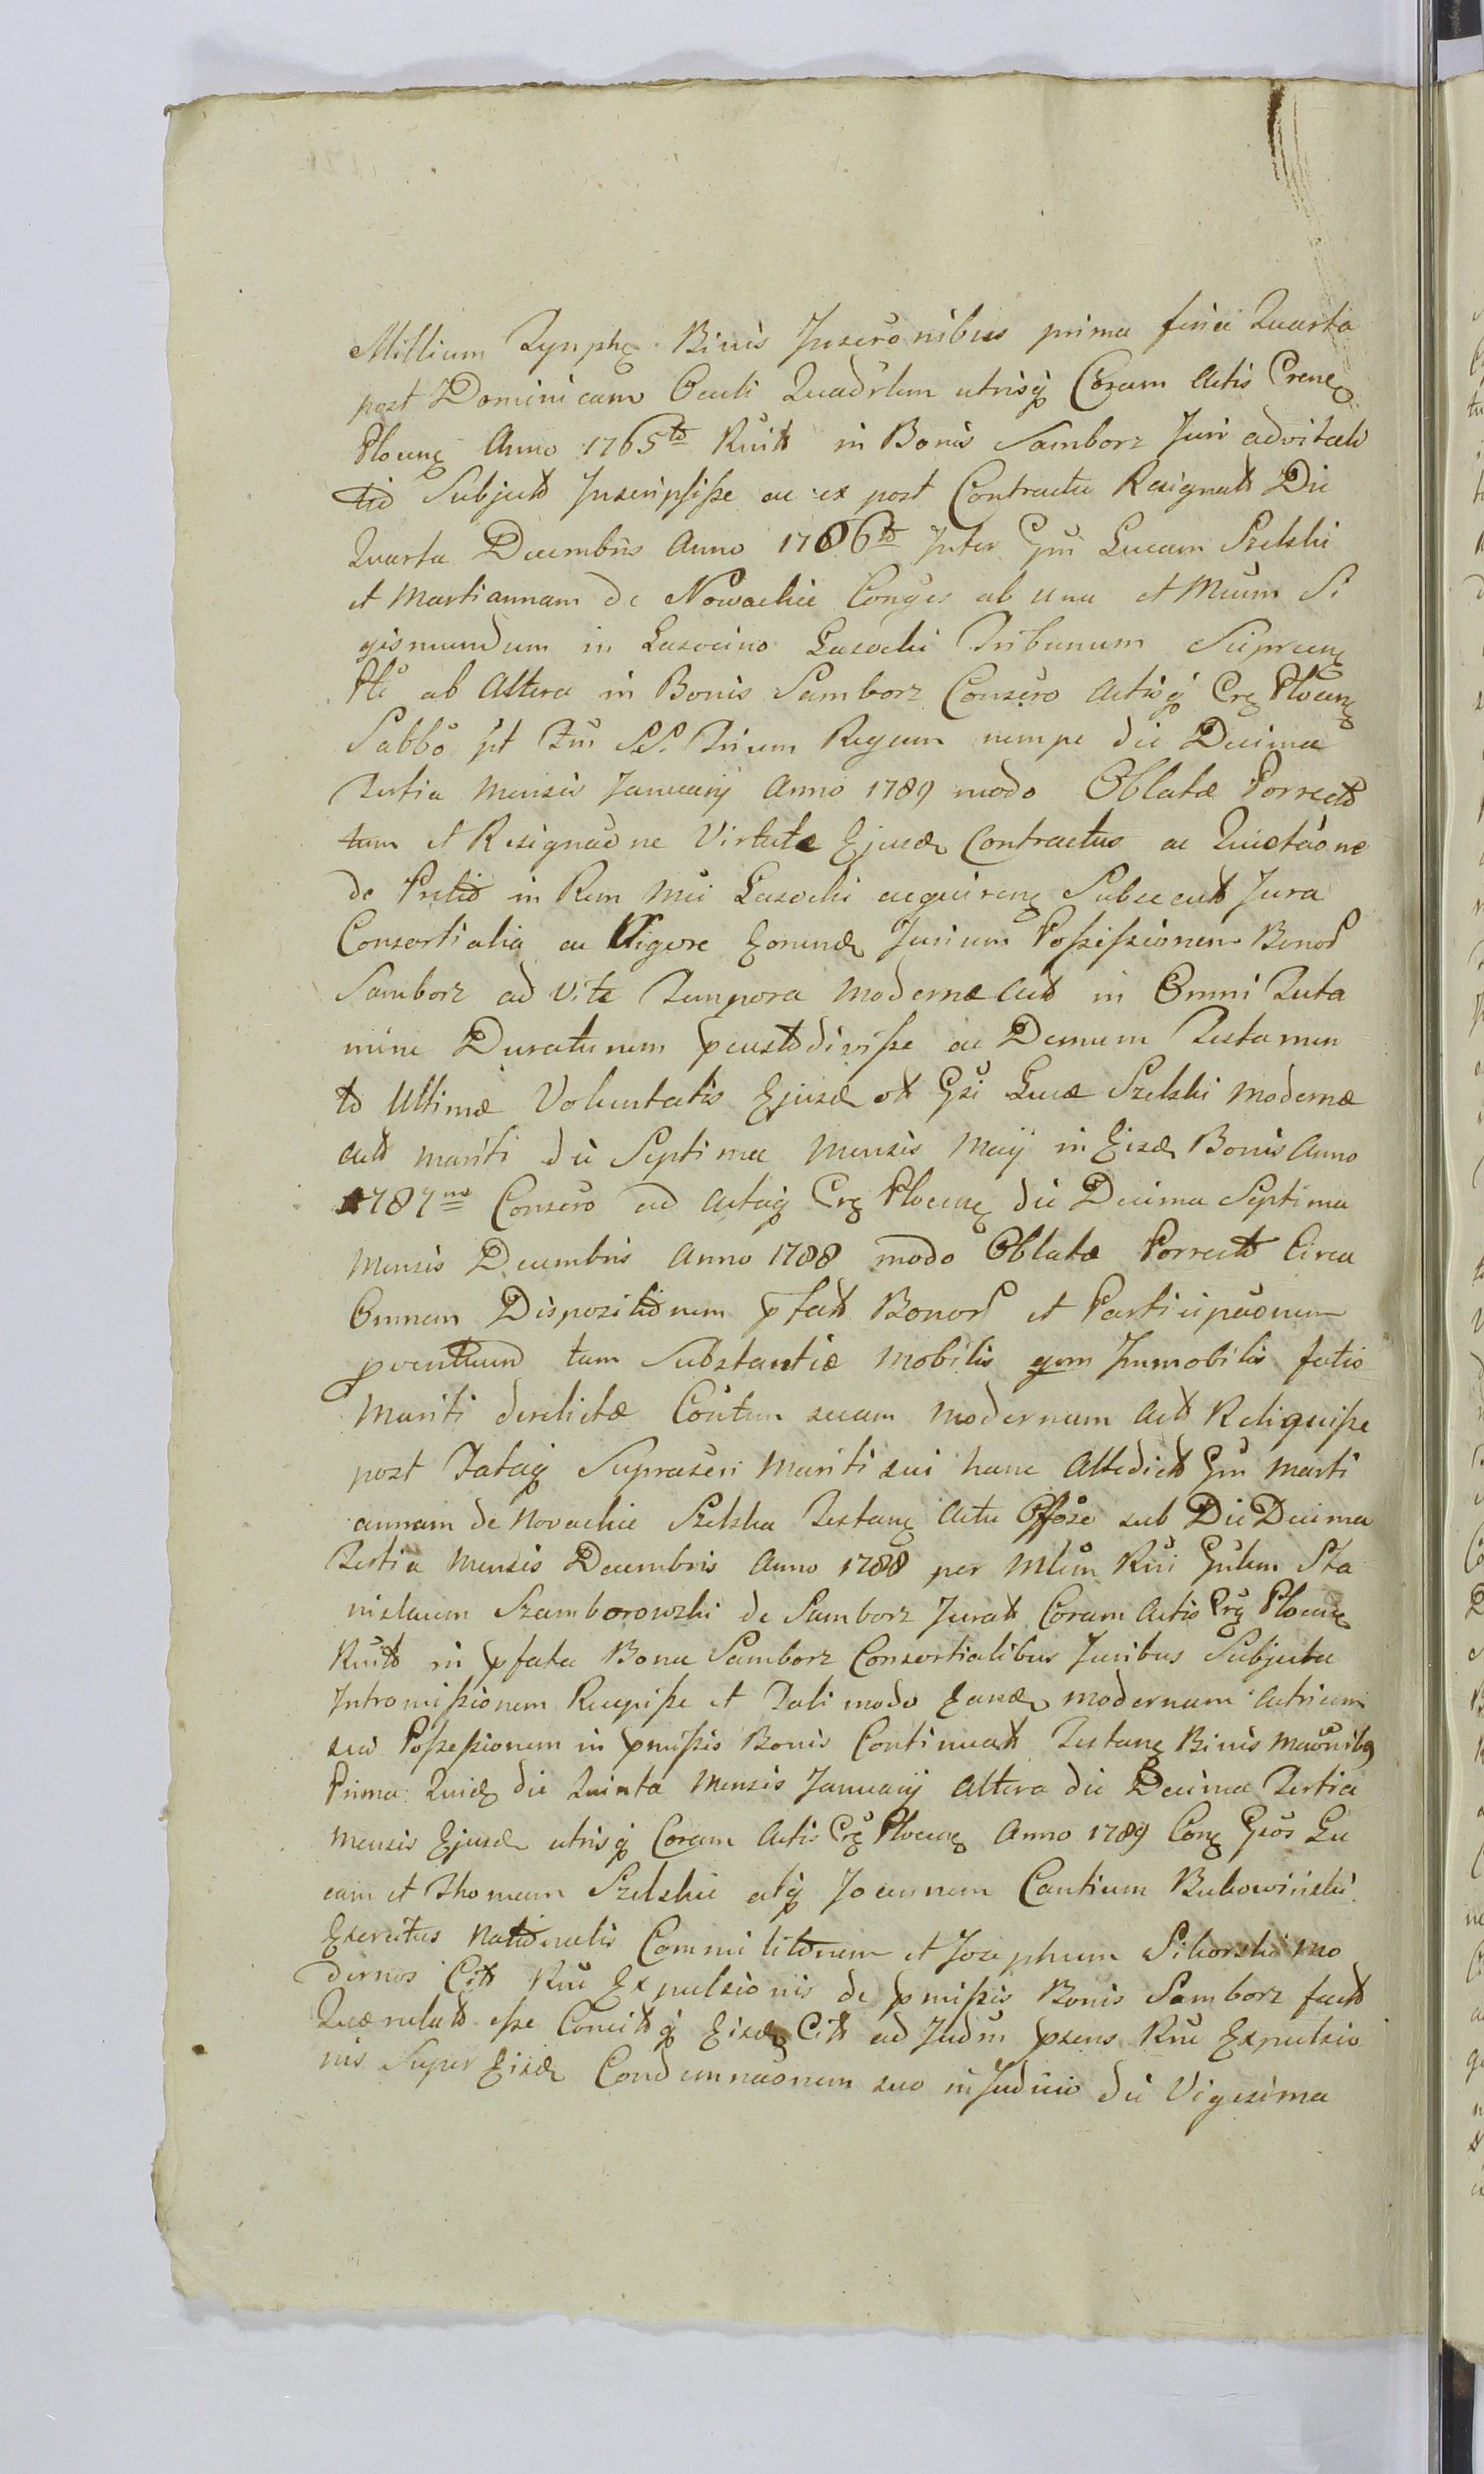 Millium Tynph. Binis Inscronibus prima feria Quarta
post Dominicam Oculi Quadrlem utrisq Coram Actis Crenen
Plocens Anno 1765to Rcitt in Bonis Samborz Juri advitali
tio Subjectt Inscripsisse ac ex post Contractu Resignatt Die
Quarta Decembris Anno 1786to Inter Gsm Lucam Szelski
et Martiannam de Nowackie Conges ab una et Mcum Si
gismundum in Lasocino Lasocki Tribunum Supreen
Ptt ab Altera in Bonis Samborz Conscro Actisq Crg Plocen
Sabbo pt Fm S.S. Trium Regum nempe die Decima
Tertia Mensis Januarij Anno 1789 modo Oblatæ Porrectt
tum et Resignaone Virtute Ejusd Contractus ac Quietaone
de Pretio in Rem Mci Lasocki acquiren Subsecutt Jura
Consortialia ac Vigore Eorund Jurium Possessionem Bonor
Samborz ad Vitæ Tempora Modernæ Actt in Omni Tuta
mine Duraturum pcustodivisse ac Demum Testamen
to Ultimæ Voluntatis Ejusd ott Gsi Lucæ Szelski Modernæ
Actt Mariti die Septima Mensis Maij in Eisd Bonis Anno
1787mo Conscro ad Actaq Crg Plocens die Decima Septima
Mensis Decembris Anno 1788 modo Oblatæ Porrectt Circa
Omnem Dispozitionem pfatt Bonor et Participaonem
proventuum tum Substantiæ Mobilis qam Immobilis fatis
Mariti derelictæ Contem suam Modernam Actt Reliquisse
post Fataq Suprascri Mariti sui hanc Attedictt Gsm Marti
annam de Novackie Szelska Testan Actu Offose sub Die Decima
Tertia Mensis Decembris Anno 1788 per Mlem Rni Gnlem Sta
nislaum Szamborowski de Samborz Juratt Coram Actis Crg Plocens
Rcitt in pfata Bona Samborz Consortialibus Juribus Subjecta
Intromissionem Recepisse et Tali modo Eand modernam Actricem
sui Possessionem in pmissis Bonis Continuatt Testan Binis Maonibq
Prima Quid die Quinta Mensis Januarij Altera die Decima Tertia
Mensis Ejusd utrisq Coram Actis Crg Plocens Anno 1789 Con Gsos Lu
cam et Thomam Szelskie atq Joannem Cantium Bukowiński
Exercitus Nationalis Commilitonem et Josephum Sikorski mo
dernos Citt Rne Expulsionis de pmissis Bonis Samborz factt
Quærulatt esse Concittq Eisd Citt ad Judm psens Rne Expulsio
nis Super Eisd Condemnaonem suo in Judicio die Vigesima